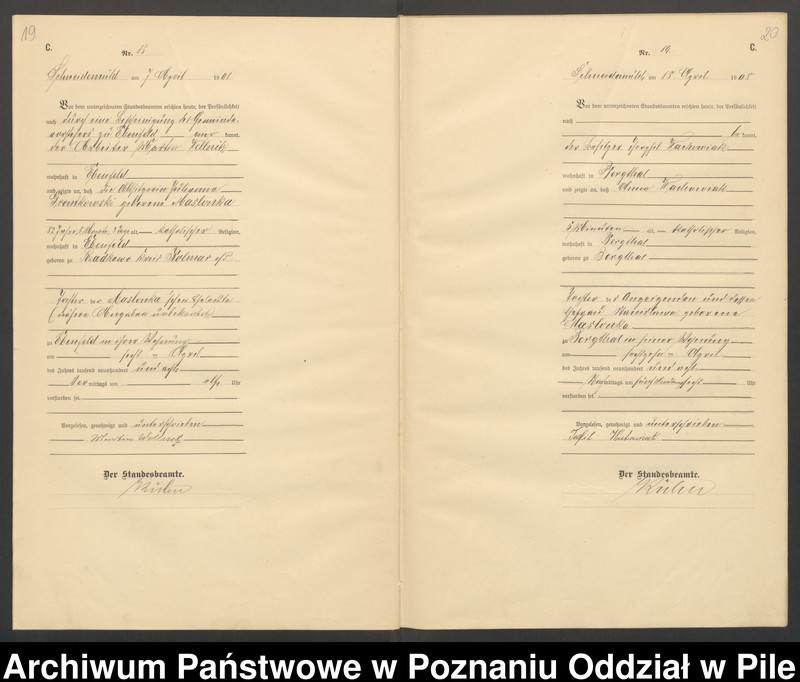 19
C.
Nr. 18
Schneidemühl am 7 April 1908
Vor dem unterzeichneten Standesbeamten erschien heute, der Persönlichkeit
nach durch eine Bescheinigung des Gemeinde-
vorstehers zu Ebenfeld aner kannt,
der Arbeiter Martin
wohnhaft in Ebenfeld
und zeigte an, daß die
geborene Maslonka
alt, katholischer Religion,
wohnhaft in Ebenfeld
geboren zu Kreis Kolmar i/P
Tochter der Maslonka schen Eheleute
(nähere Angaben unbekannt)
zu Ebenfeld in ihrer Wohnung
am sechs ten April
des Jahres tausend neunhundert und acht
Vor mittags um elf Uhr
verstorben sei.
Vorgelesen, genehmigt und unterschrieben
Martin
Der Standesbeamte.
Kühn
20
C.
Nr. 19
Schneidemühl am 15 April 1908
Vor dem unterzeichneten Standesbeamten erschien heute, der Persönlichkeit
nach
be kannt,
der Besitzer Joseph
wohnhaft in Bergthal
und zeigte an, daß Anna
5 Minuten alt, katholischer Religion,
wohnhaft in Bergthal
geboren zu Bergthal
Tochter des Anzeigenden und dessen
Ehefrau Stanislawa geborene
Maslonka
zu Bergthal in seiner Wohnung
am fünfzehn ten April
des Jahres tausend neunhundert und acht
mittags um Uhr
verstorben sei.
Vorgelesen, genehmigt und unterschrieben
Der Standesbeamte.
Kühn
Archiwum Państwowe w Poznaniu Oddział w Pile